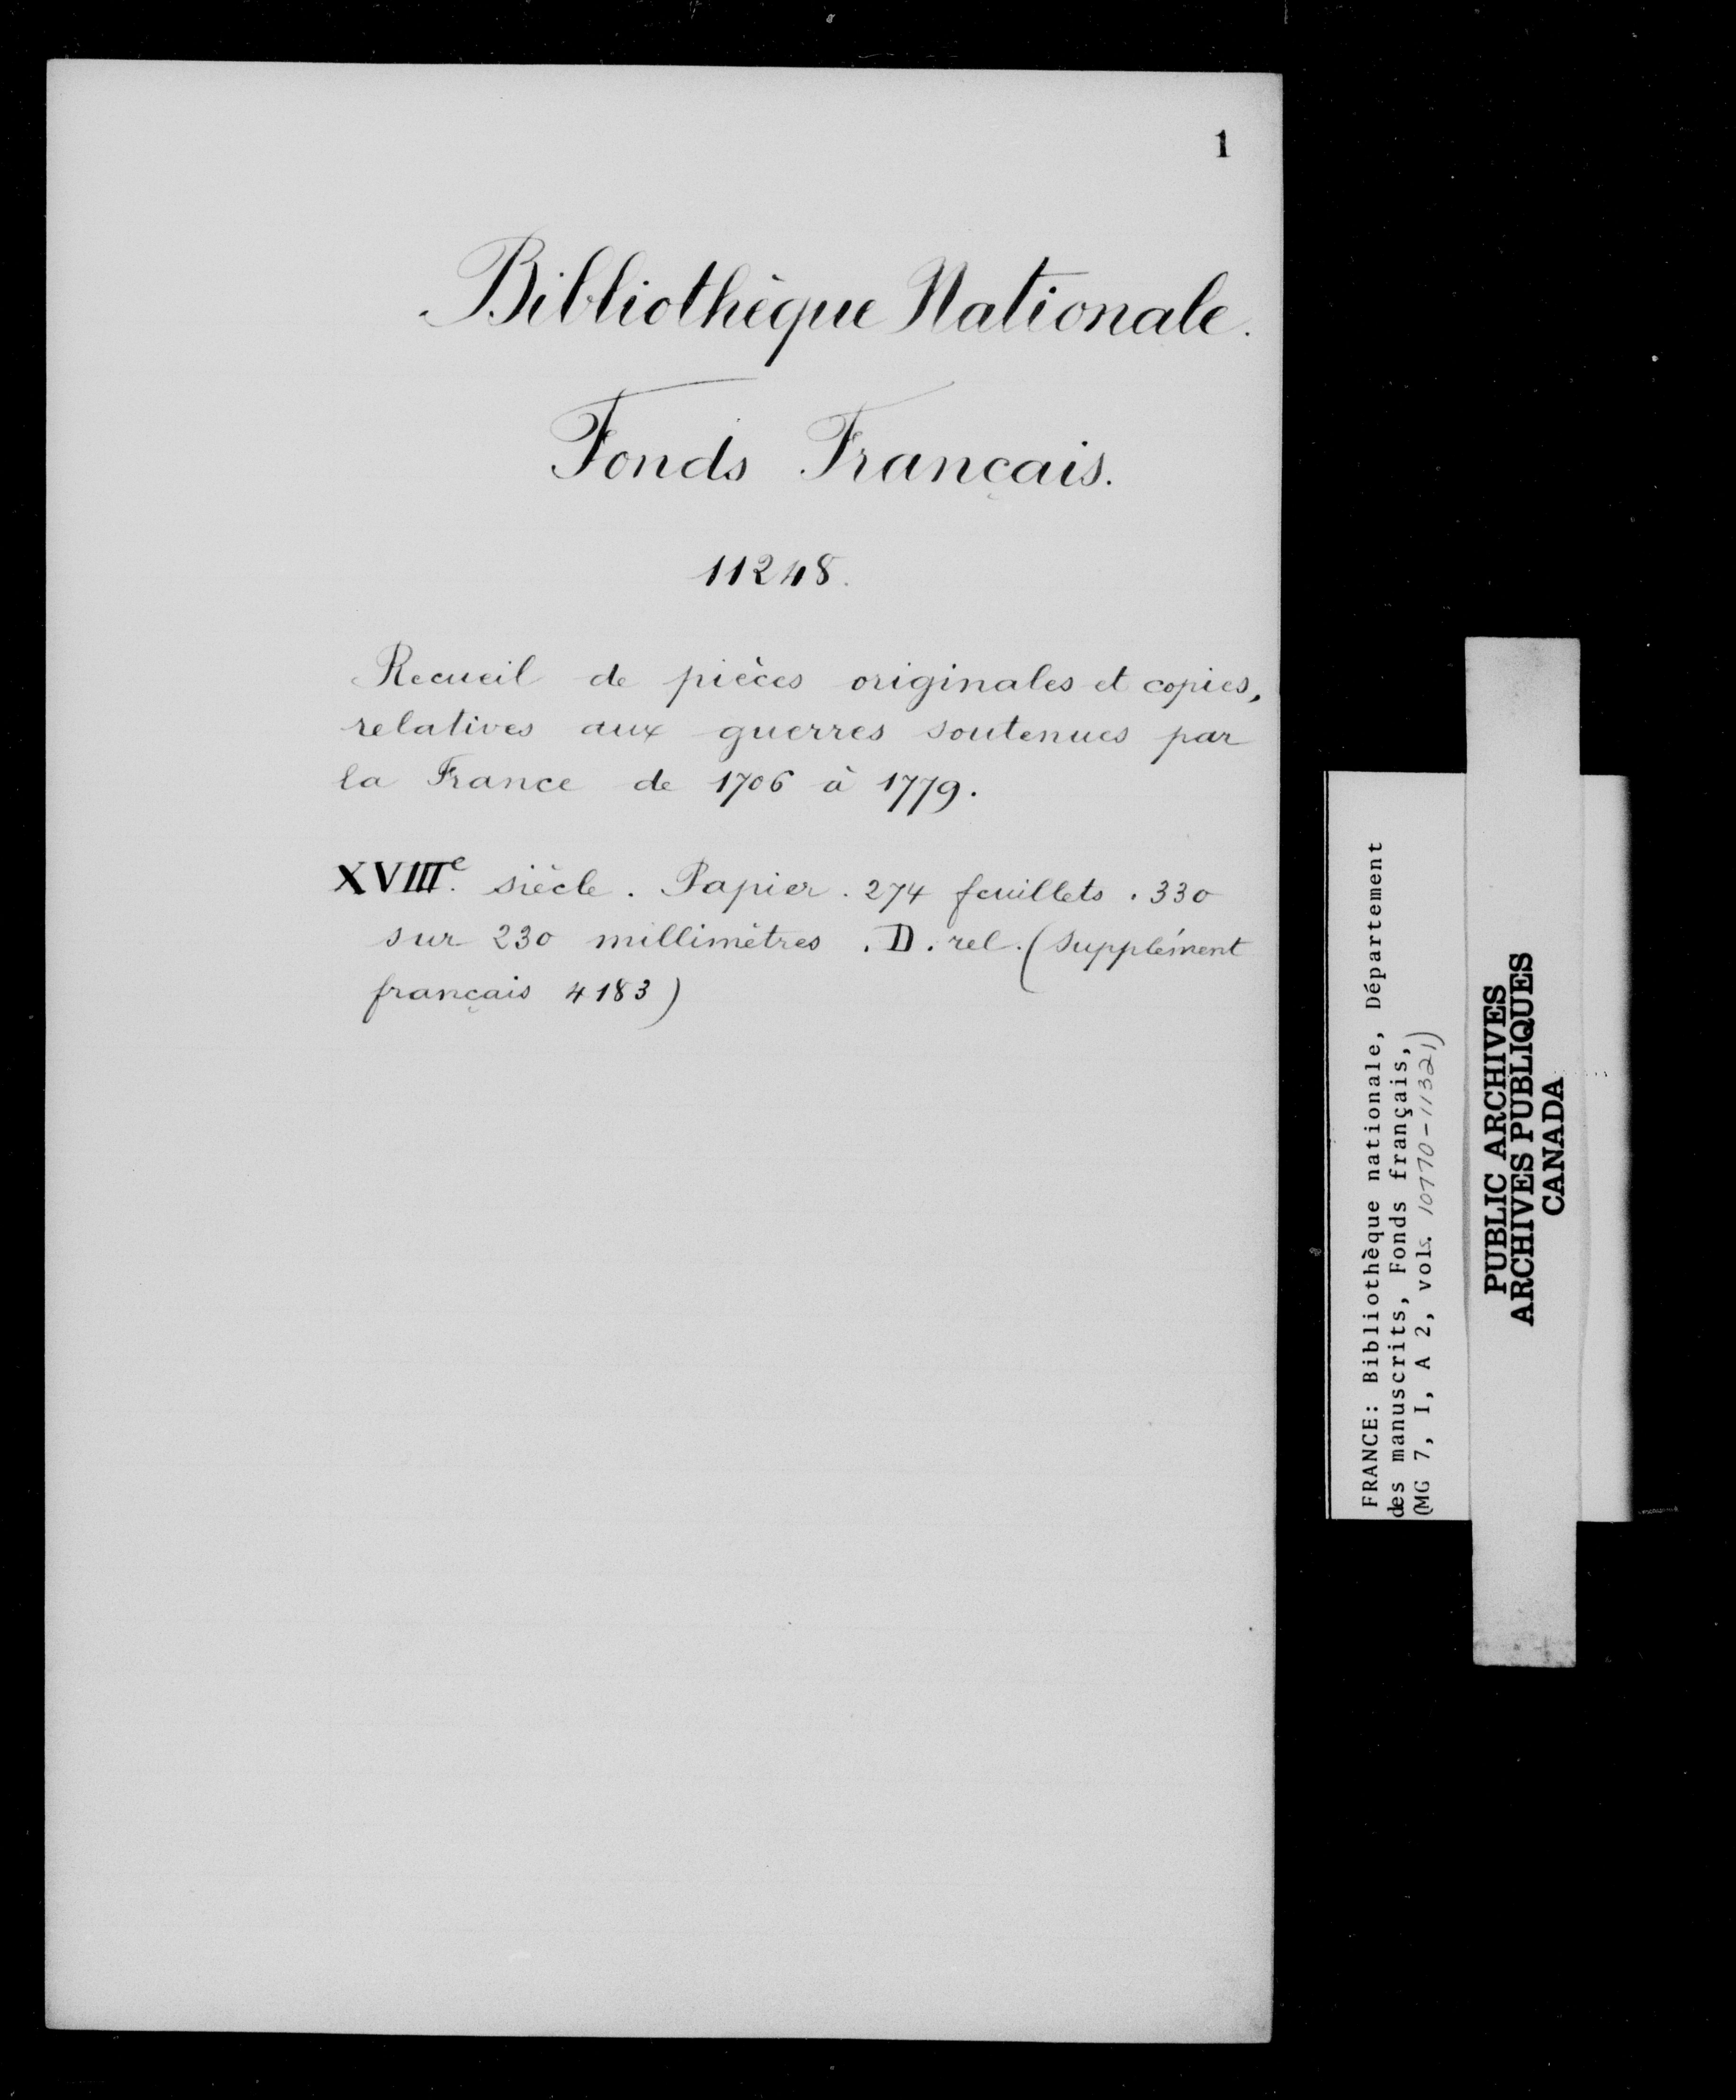 1
Bibliothèque Nationale.
Fonds Français.
11248.
Recueil de pièces originales et copies,
relatives aux guerres soutenues par
la France de 1706 à 1779.
XVIIIe. siècle. Papier. 274 feuillets. 330
sur 230 millimètres. D. rel. (Supplément
français 4183)
FRANCE: Bibliothèque nationale, Département
des manuscrits, Fonds français,
(MG 7, I, A 2, vols. 10770-11321)
PUBLIC ARCHIVES
ARCHIVES PUBLIQUES
CANADA